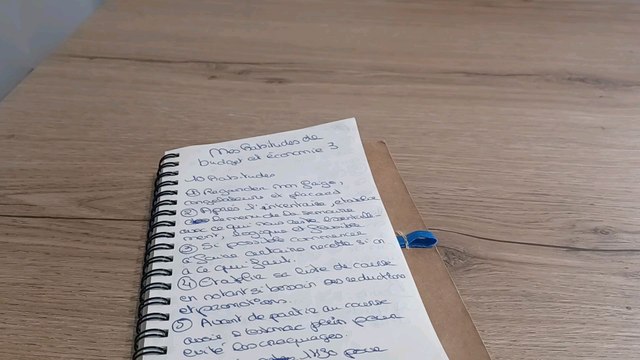 Mes habitudes de
budget et économie 3
10 habitudes
① Regarder mon frigo,
congélateurs et placard
② Après l'inventaire, établir
le menu de la semaine
avec ce que nous reste
③ Si possible commencer
à faire certaine recette si on
a ce qu'il faut.
④ établir sa liste de course
en notant si besoin les réductions
et promotions.
⑤ Avant de partir au course
avoir l'estomac plein pour
évité les craquages
1h30 pour